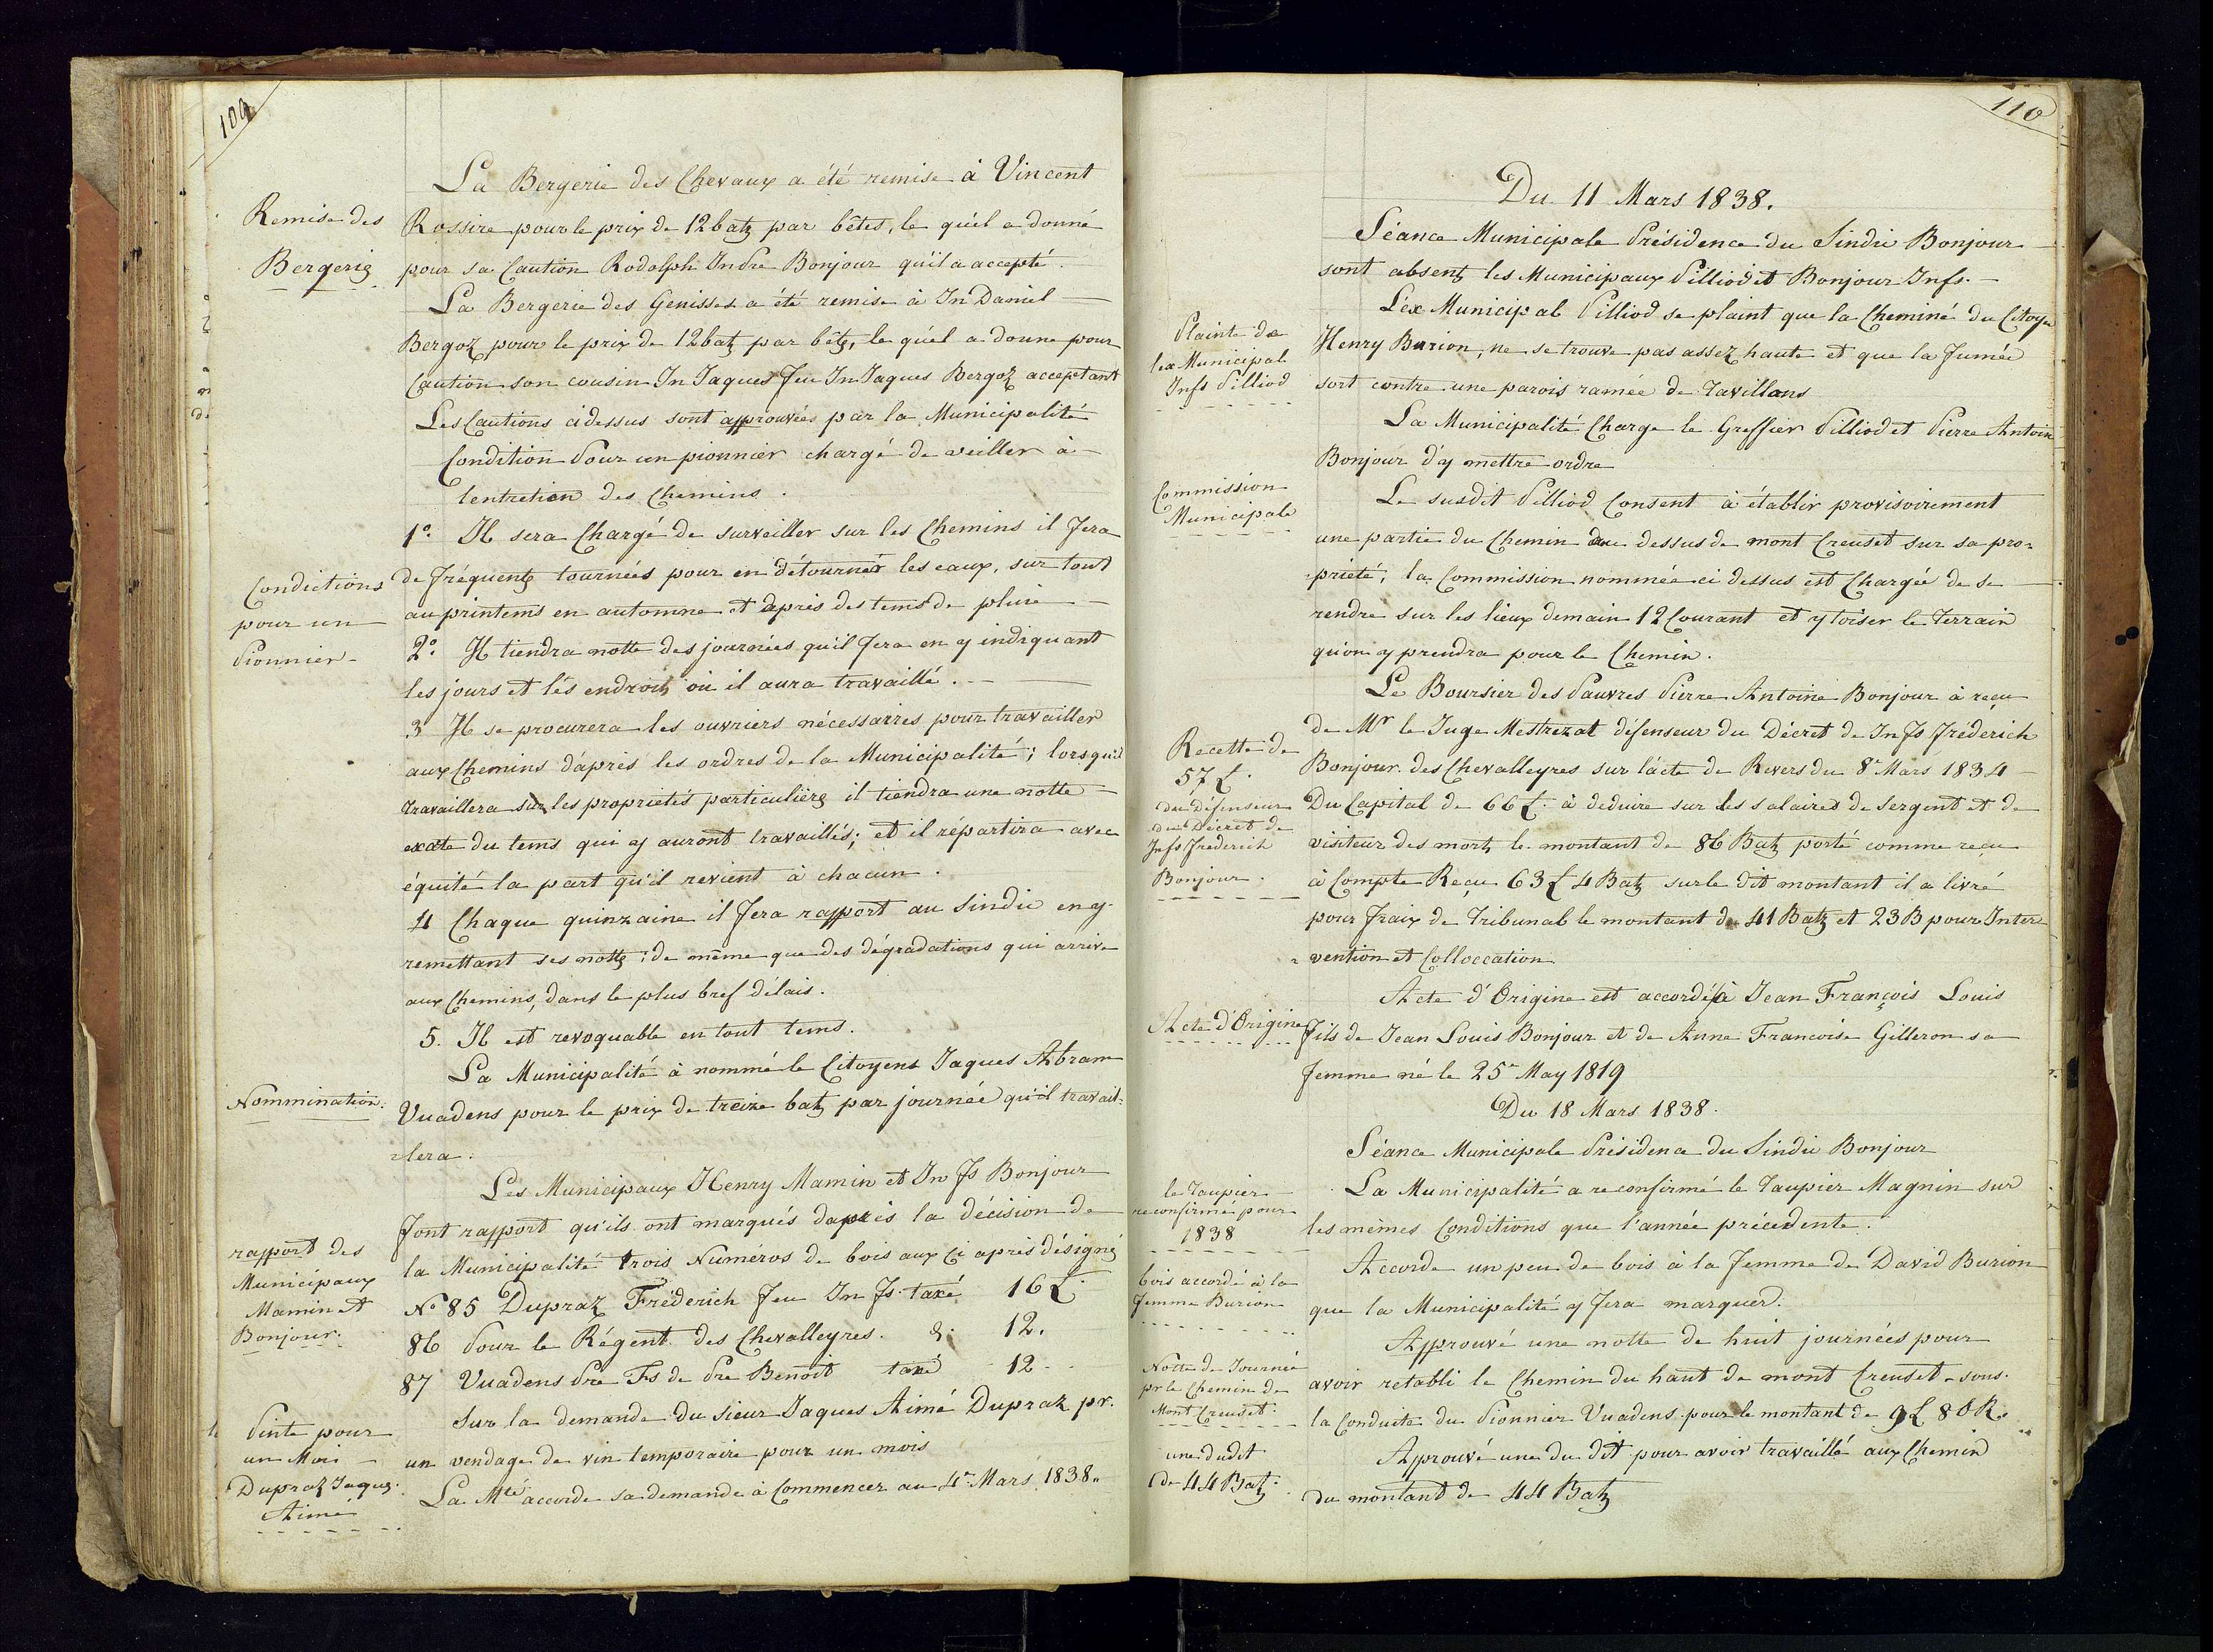 109
La Bergerie des Chevaux a été remise à Vincent
Remise des
Bergerie
Rossire pour le prix de 12 batz par bêtes, le qu'el a donné
pour sa Caution Rodolph Indre Bonjour qu'il a accepté.
La Bergerie des Genisses a été remise à Jn Daniel
Bergoz pour le prix de 12 batz par bêts, le qu'el a donne pour
Caution son cousin Jn Jaques feu Jn Jaques Bergoz acceptant
Les Cautions cidessus sont approuvées par la Municipalité
Condition Pour un pionnier chargé de veiller à
lentretien des Chemins.
1o. Il sera Chargé de surveiller sur les Chemins il fera
Condictions
pour un
Pionnier
de fréquents tournées pour en détourner les eaux, sur tout
au printems en automne et après des tems de pluie
2o. Il tiendra notte des journées qu'il fera en y indiquant
les jours et les endroits où il aura travaillé.
3 Il se procurera les ouvriers nécessaires pour travailler
aux Chemins d'après les ordres de la Municipalité; lorsqu'il
travaillera sur les proprietés particulière il tiendra une notte
exate du tems qui y auront travaillés; et il répartira avec
équité la part qu'il revient à chacun.
4 Chaque quinzaine il fera rapport au Sindic en y
remettant ses notts; de même que des dégradations qui arrive
aux Chemins, dans le plus bref délais.
5. Il est revoquable en tout tems.
La Municipalité à nommé le Citoyens Jaques Abram
Nommination.
Vuadens pour le prix de treize batz par journée qu'il travail-
lera.
Les Municipaux Henry Mamin et Jn Fs Bonjour
font rapport qu'ils ont marqués dapres la décision de
rapport des
Municipaux
Mamin et
Bonjour.
la Municipalité trois Numéros de bois aux ci après désigné
No 85 Dupraz Fréderich feu Jn Fs. taxé 16 £.
86 Pour le Régent des Chevalleyres. d. 12.
87 Vuadens Pre Fs de Pre Benoit taxé 12
Sur la demande du sieur Jaques Aimé Dupraz pr.
Pinte pour
un Moi
Dupraz Jaques
Aimé
un vendage de vin temporaire pour un mois
La Mté accorde sa demande à Commencer au 4e Mars 1838.
110
Du 11 Mars 1838.
Séance Municipale Présidence du Sindic Bonjour
sont absents les Municipaux Pilliod et Bonjour Jn fs.
L'ex Municipal Pilliod se plaint que la Cheminé du Citoye
Plainte de
lex Municipal
Jn fs Pilliod
Henry Burion, ne se trouve pas assez haute et que la fumée
sort contre une parois ramée de Tavillons
La Municipalité Charge le Greffier Pilliod et Pierre Antoin
Bonjour d'y mettre ordre
Commission
Municipale
Le susdit Pilliod Consent à établir provisoirement
une partie du Chemin au dessus de mont Creuset sur sa pro-
prieté; la Commission nommée ci dessus est Chargée de se
rendre sur les lieux demain 12 Courant et y toiser le Terrain
qu'on y prendra pour le Chemin.
Le Boursier des Pauvres Pierre Antoine Bonjour à reçu
Recette de
57 £.
du défenseur
du Décret de
Jn fs frederich
Bonjour.
de Mr le Juge Mestrezat défenseur du Décret de Jn Fs Fréderich
Bonjour des Chevalleyres sur l'acte de Revers du 8e Mars 1834
Du Capital de 66 £. à deduire sur les salaires de sergent et de
visiteur des morts le montant de 86 Batz porté comme reçu
à Compte Reçu 63 £ 4 Batz sur le dit montant il a livré
pour fraix de Tribunal le montant de 41 Batz et 23 B pour Inter
vention et Colloccation
Acte d'Origine est accordé à Jean François Louis
Acte d'Origine
fils de Jean Louis Bonjour et de Anne Francoise Gilleron sa
femme né le 25e May 1819
Du 18 Mars 1838.
Séance Municipale Présidence du Sindic Bonjour
le Taupier
reconfirmé pour
1838
La Municipalité a reconfirmé le Taupier Magnin sur
les mêmes Conditions que l'année précedente.
bois accordé à la
femme Burion
Accorde un peu de bois à la femme de David Burion
que la Municipalité y fera marquer.
Approuvé une notte de huit journées pour
Notte de Journée
pr le Chemin de
Mont Creuset
avoir retabli le Chemin du haut de mont Creuset sous
la Conduite du Pionnier Vuadens pour le montant de 9 £ 8 B R.
une dudit
de 44 Batz
Approuvé une du dit pour avoir travaillé aux Chemin
du montant de 44 Batz